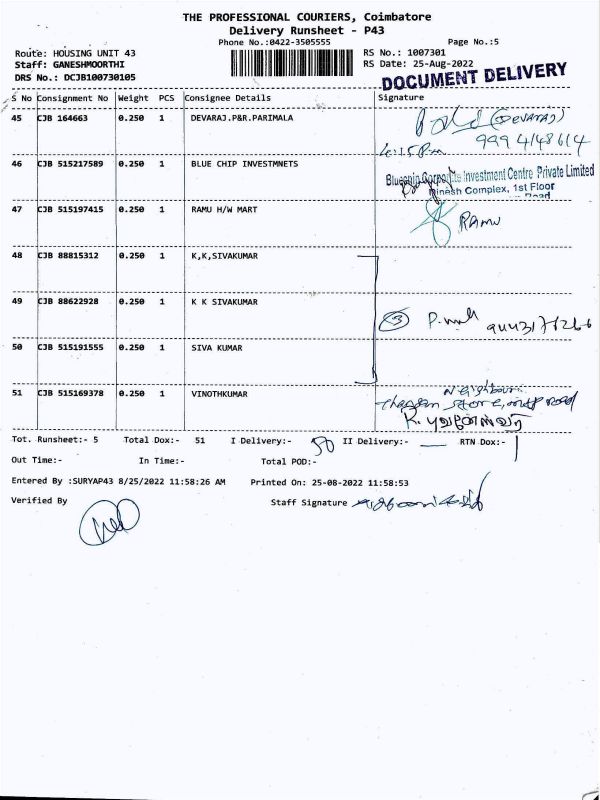 THE PROFESSIONAL COURIERS, Coimbatore
Delivery Runsheet - P43
Phone No.:0422-3505555
Page No.:5
Route: HOUSING UNIT 43
RS No.: 1007301
Staff: GANESHMOORTHI
RS Date: 25-Aug-2022
DRS No.: DCJB100730105
DOCUMENT DELIVERY
S No Consignment No Weight PCS Consignee Details Signature
45 CJB 164663 0.250 1 DEVARAJ.P&R.PARIMALA
(DEVARAJ)
9994148614
4:15 Pm
46 CJB 515217589 0.250 1 BLUE CHIP INVESTMNETS
Investment Centre Private Limited
Complex, 1st Floor
Road
47 CJB 515197415 0.250 1 RAMU H/W MART
RAMU
48 CJB 88815312 0.250 1 K,K,SIVAKUMAR
49 CJB 88622928 0.250 1 K K SIVAKUMAR
3
50 CJB 515191555 0.250 1 SIVA KUMAR
51 CJB 515169378 0.250 1 VINOTHKUMAR
Neighbour
store,
Tot. Runsheet:- 5 Total Dox:- 51 I Delivery:- 50 II Delivery:- — RTN Dox:- 1
Out Time:- In Time:- Total POD:-
Entered By :SURYAP43 8/25/2022 11:58:26 AM Printed On: 25-08-2022 11:58:53
Verified By Staff Signature